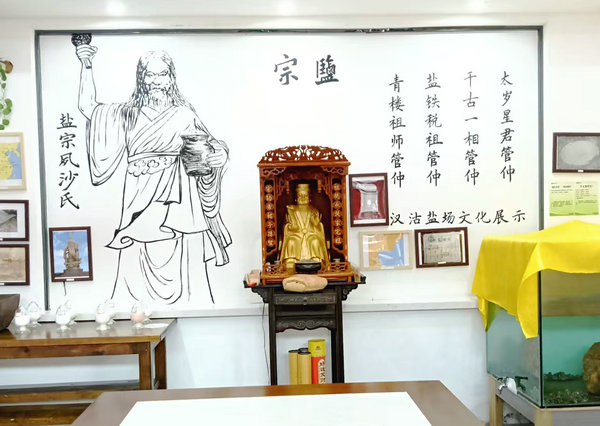 宗鹽
太岁星君管仲
千古一相管仲
盐铁税祖管仲
青楼祖师管仲
盐宗夙沙氏
汉沽盐场文化展示